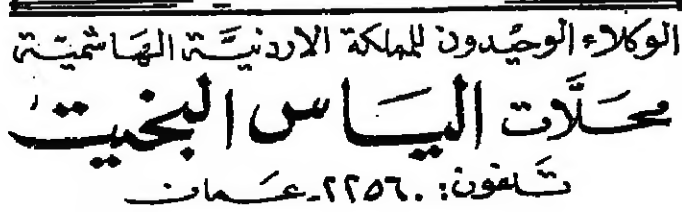 الوكلاء الوحيدون للمملكة الاردنية الهاشمية
محلات الياس البخيت
تلفون: ٢٢٥٦٠ - عمان